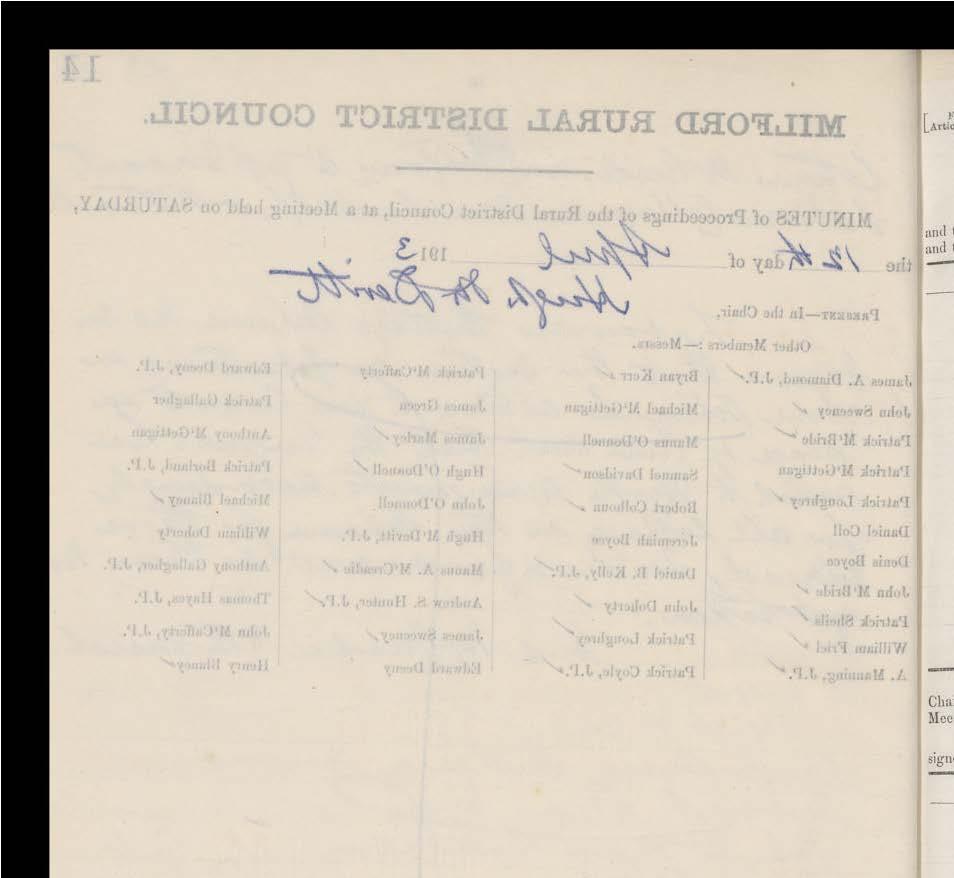 14
MILFORD RURAL DISTRICT COUNCIL.
MINUTES of Proceedings of the Rural District Council, at a Meeting held on SATURDAY,
the 12th day of April 1913
Hugh McDevitt
PRESENT—In the Chair,
Other Members :—Messrs.
James A. Diamond, J.P.
John Sweeney
Patrick M'Bride
Patrick M'Gettigan
Patrick Loughrey
Daniel Coll
Denis Boyce
John M'Bride
Patrick Sheils
William Friel
A. Manning, J.P.
Bryan Kerr
Michael M'Gettigan
Manus O'Donnell
Samuel Davidson
Robert Colhoun
Jeremiah Boyce
Daniel B. Kelly, J.P.
John Doherty
Patrick Loughrey
Patrick Coyle, J.P.
Patrick M'Cafferty
James Green
James Marley
Hugh O'Donnell
John O'Donnell
Hugh M'Devitt, J.P.
Manus A. M'Creadie
Andrew S. Hunter, J.P.
James Sweeney
Edward Deeny
Edward Deeny, J.P.
Patrick Gallagher
Anthony M'Gettigan
Patrick Borland, J.P.
Michael Blaney
William Doherty
Anthony Gallagher, J.P.
Thomas Hayes, J.P.
John M'Cafferty, J.P.
Henry Blaney
[Artic
and
and
Chai
Mee
sign